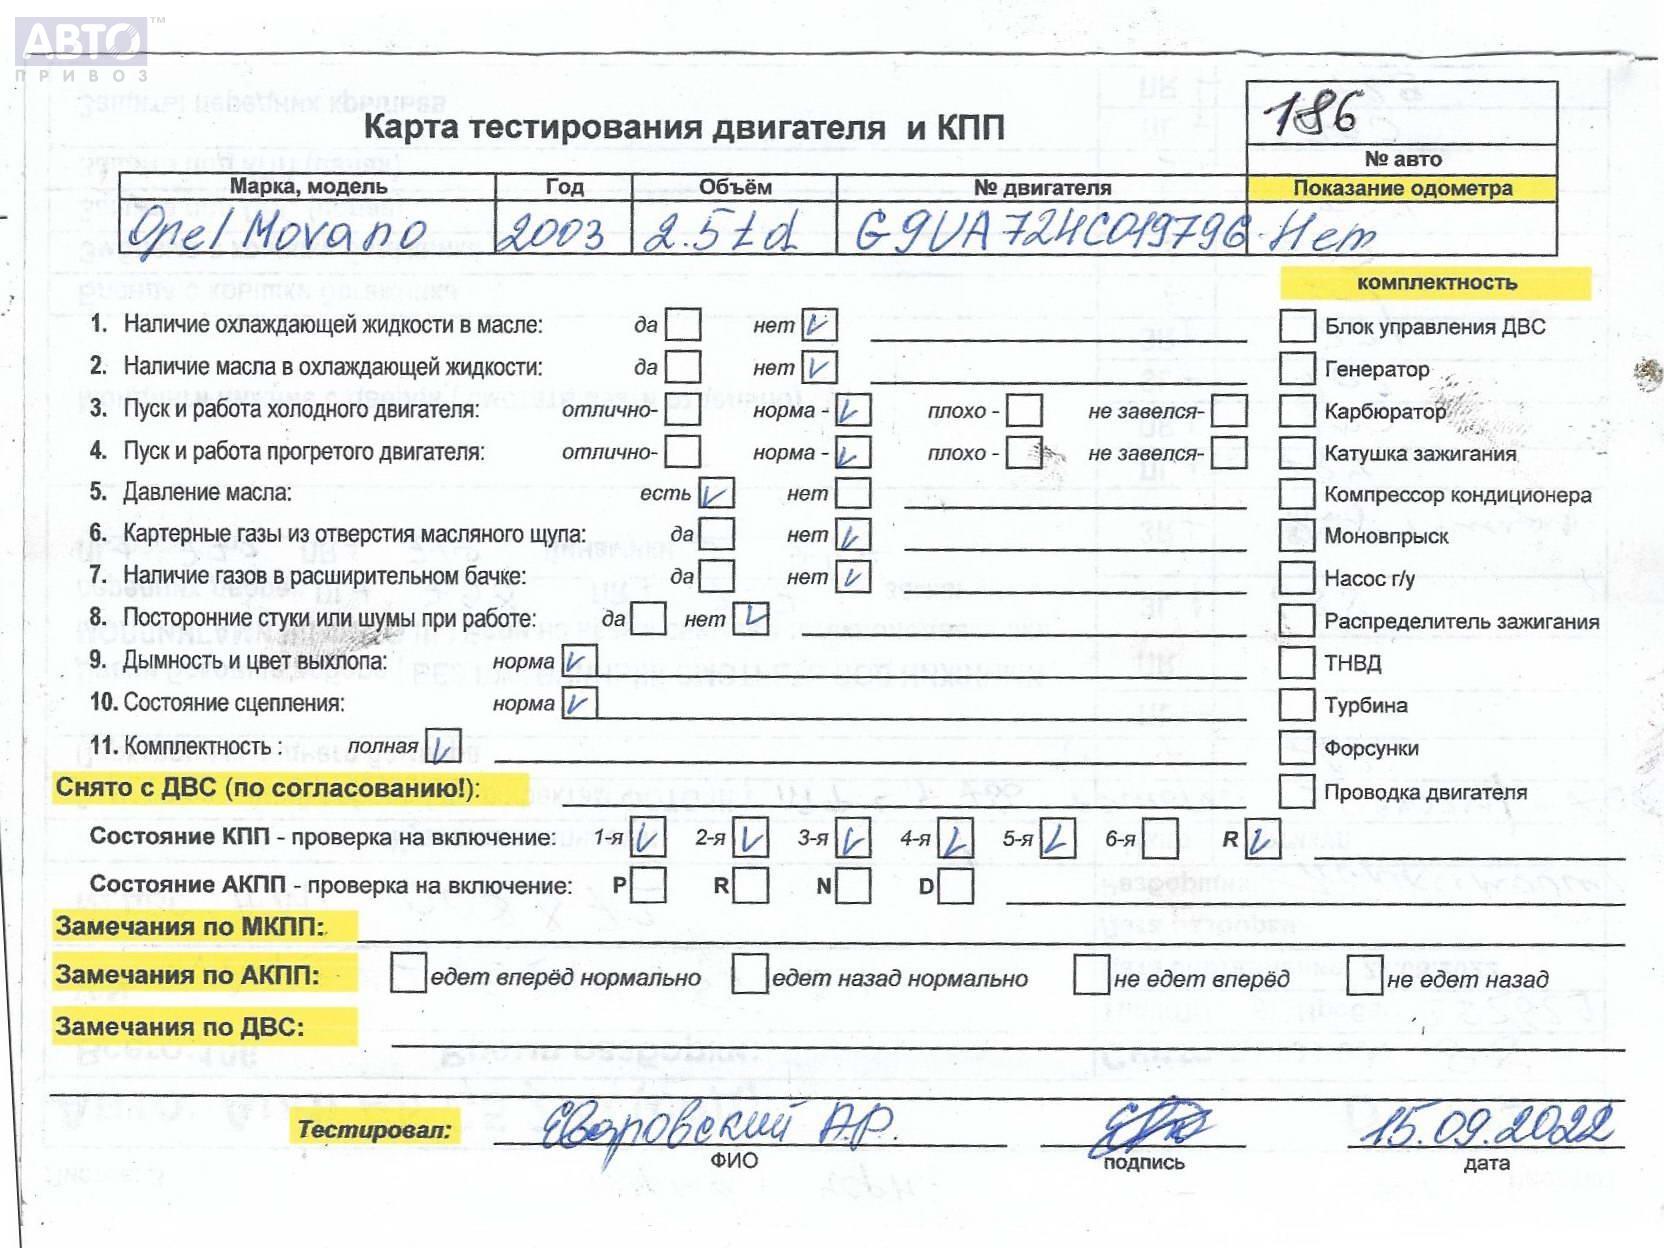 АВТО™
ПРИВОЗ
186
Карта тестирования двигателя и КПП
№ авто
Марка, модель Год Объём № двигателя Показание одометра
Opel Movano 2003 2.5td G9UA724C019796 Нет
комплектность
1. Наличие охлаждающей жидкости в масле: да нет V Блок управления ДВС
2. Наличие масла в охлаждающей жидкости: да нет V Генератор
3. Пуск и работа холодного двигателя: отлично- норма - V плохо - не завелся- Карбюратор
4. Пуск и работа прогретого двигателя: отлично- норма - V плохо - не завелся- Катушка зажигания
5. Давление масла: есть V нет Компрессор кондиционера
6. Картерные газы из отверстия масляного щупа: да нет V Моновпрыск
7. Наличие газов в расширительном бачке: да нет V Насос г/у
8. Посторонние стуки или шумы при работе: да нет V Распределитель зажигания
9. Дымность и цвет выхлопа: норма V ТНВД
10. Состояние сцепления: норма V Турбина
11. Комплектность : полная V Форсунки
Снято с ДВС (по согласованию!): Проводка двигателя
Состояние КПП - проверка на включение: 1-я V 2-я V 3-я V 4-я V 5-я V 6-я R V
Состояние АКПП - проверка на включение: P R N D
Замечания по МКПП:
Замечания по АКПП: едет вперёд нормально едет назад нормально не едет вперёд не едет назад
Замечания по ДВС:
Тестировал: А.Р. 15.09.2022
ФИО подпись дата